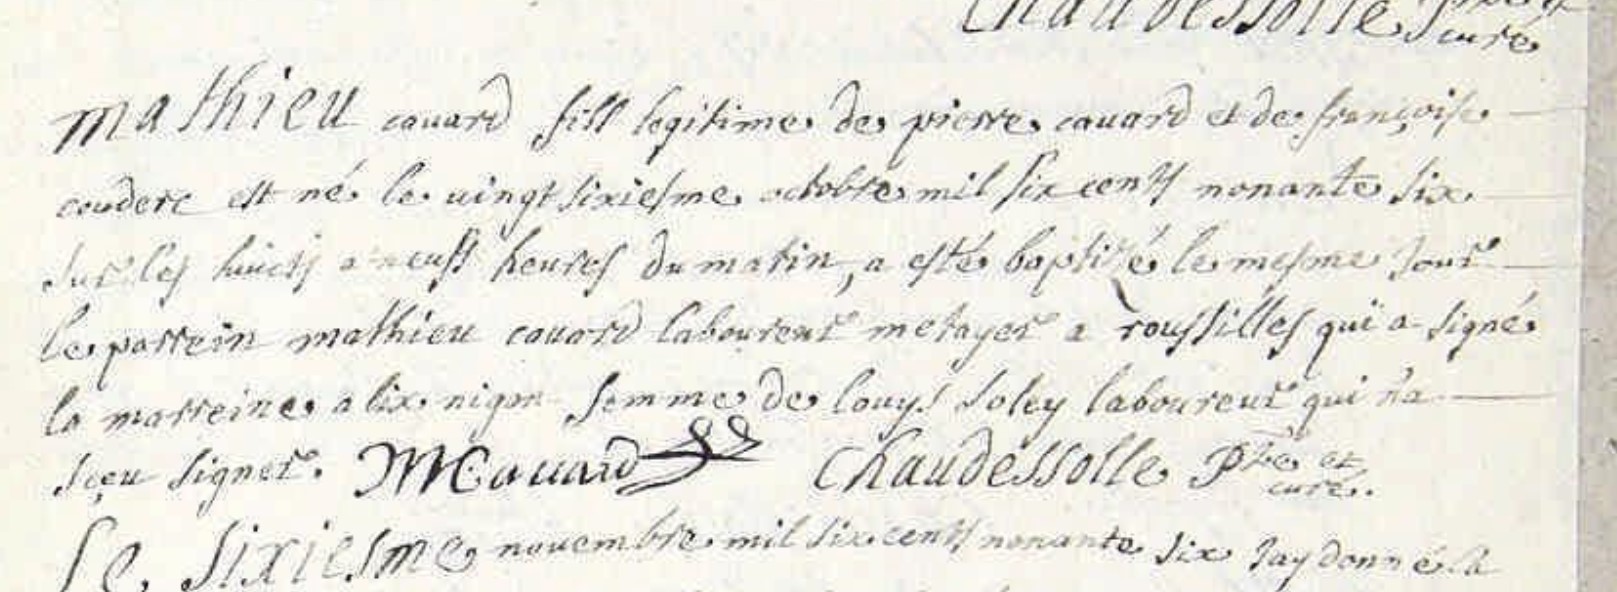 Chaudessolle ptre et
curé
Mathieu couard fill legitime de pierre couard et de françoise
couderc est né le uingt sixiesme octobre mil six cents nonante six
sur les huict a neuff heures du matin, a esté baptisé le mesme jour
le parrein mathieu couard laboureur metayer a roussilles qui a signé
la marreine alix nigon femme de louys soley laboureur qui n'a
sceu signer. MCouard Chaudessolle Ptre et
curé.
Le sixiesme nouembre mil six cents nonante six jay donné la